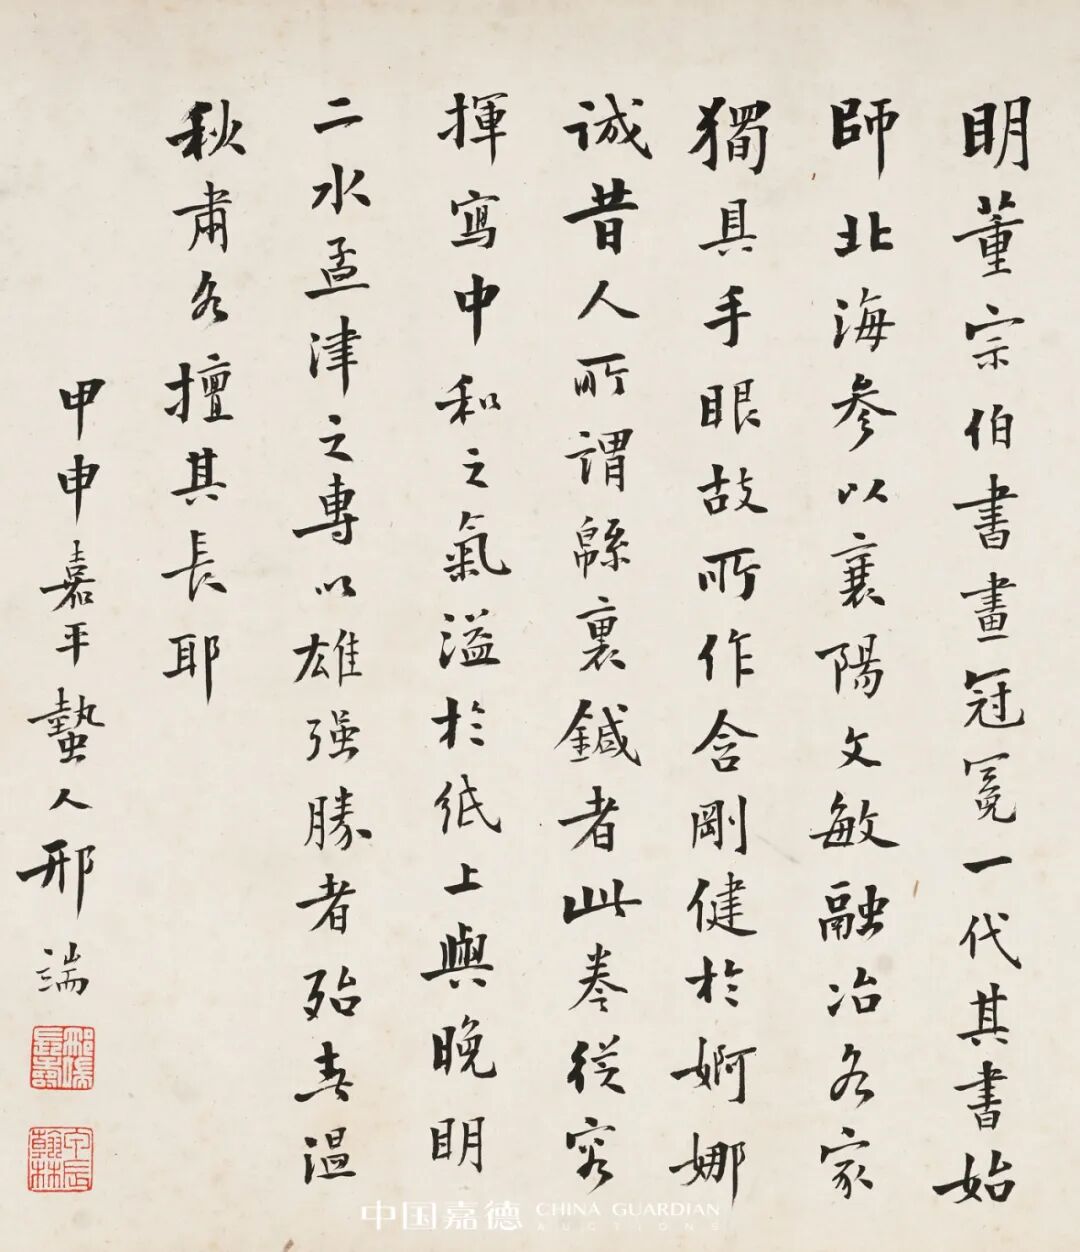 明董宗伯書畫冠冕一代其書始
師北海參以襄陽文敏融冶各家
獨具手眼故所作含剛健於婀娜
誠昔人所謂緜裏鍼者此卷從容
揮寫中和之氣溢於紙上與晚明
二水孟津之專以雄强勝者殆春溫
秋肅各擅其長耶
甲申嘉平蟄人邢端
邢端長壽
甲辰翰林
中国嘉德 CHINA GUARDIAN
AUCTIONS